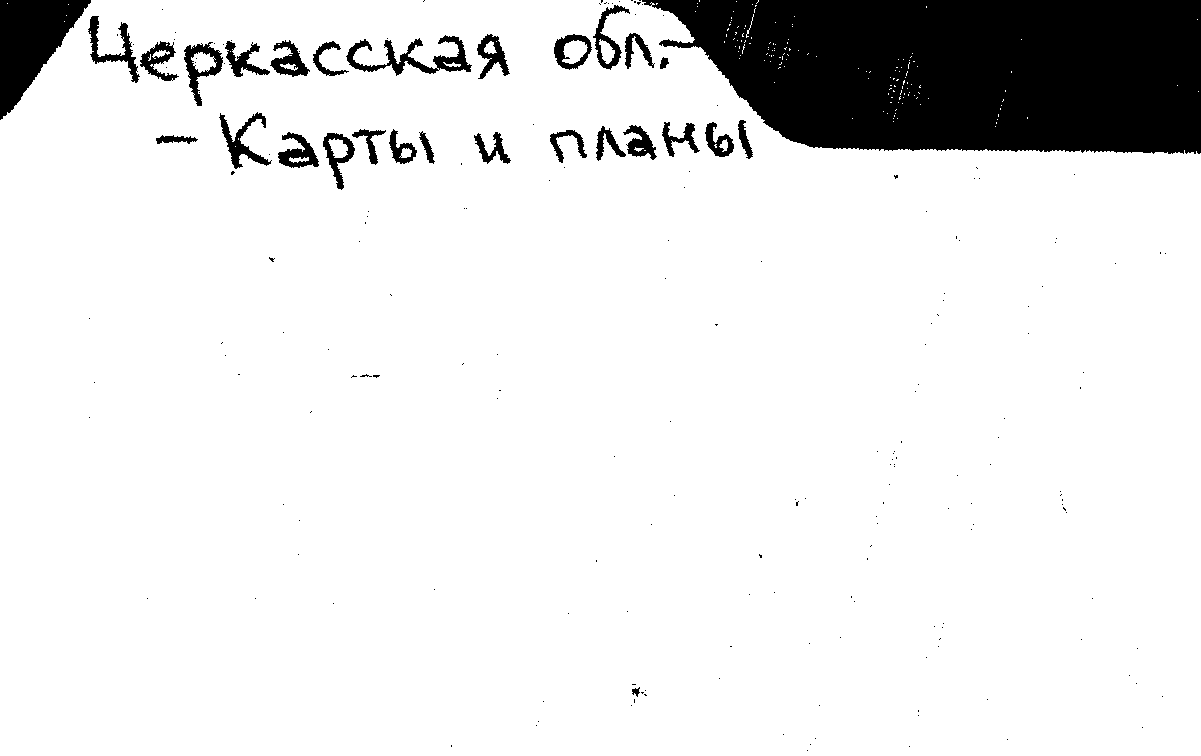 Черкасская обл.-
- Карты и планы